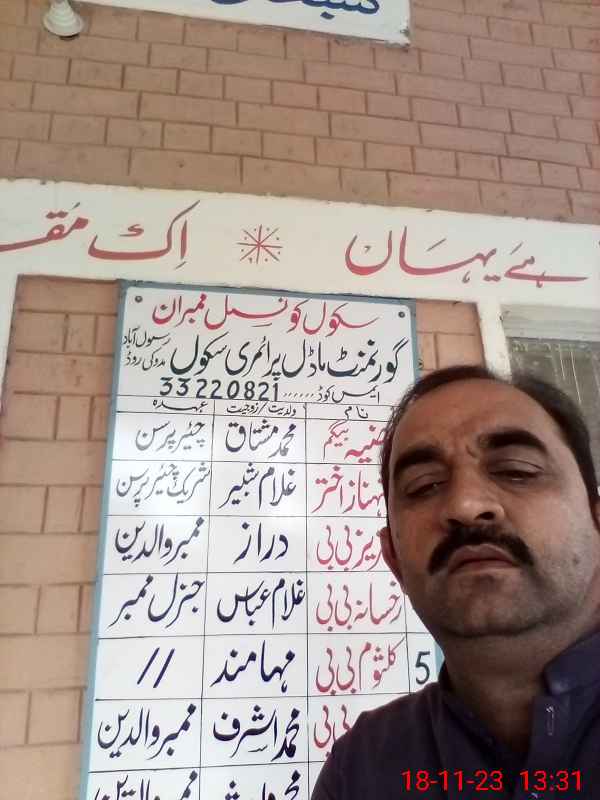 ہے یہاں * اِک مُقـ
سکول کونسل ممبران
گورنمنٹ ماڈل پرائمری سکول رسول آباد مدوکی روڈ
ایس کوڈ ...... 33220821
نام ولدیت/زوجیت عہدہ
بیگم محمد مشتاق چیئرپرسن
اختر غلام شبیر شریک چیئرپرسن
بی بی دراز ممبر والدین
رخسانہ بی بی غلام عباس جنرل ممبر
5 کلثوم بی بی مہامند //
بی بی محمد اشرف ممبر والدین
18-11-23 13:31